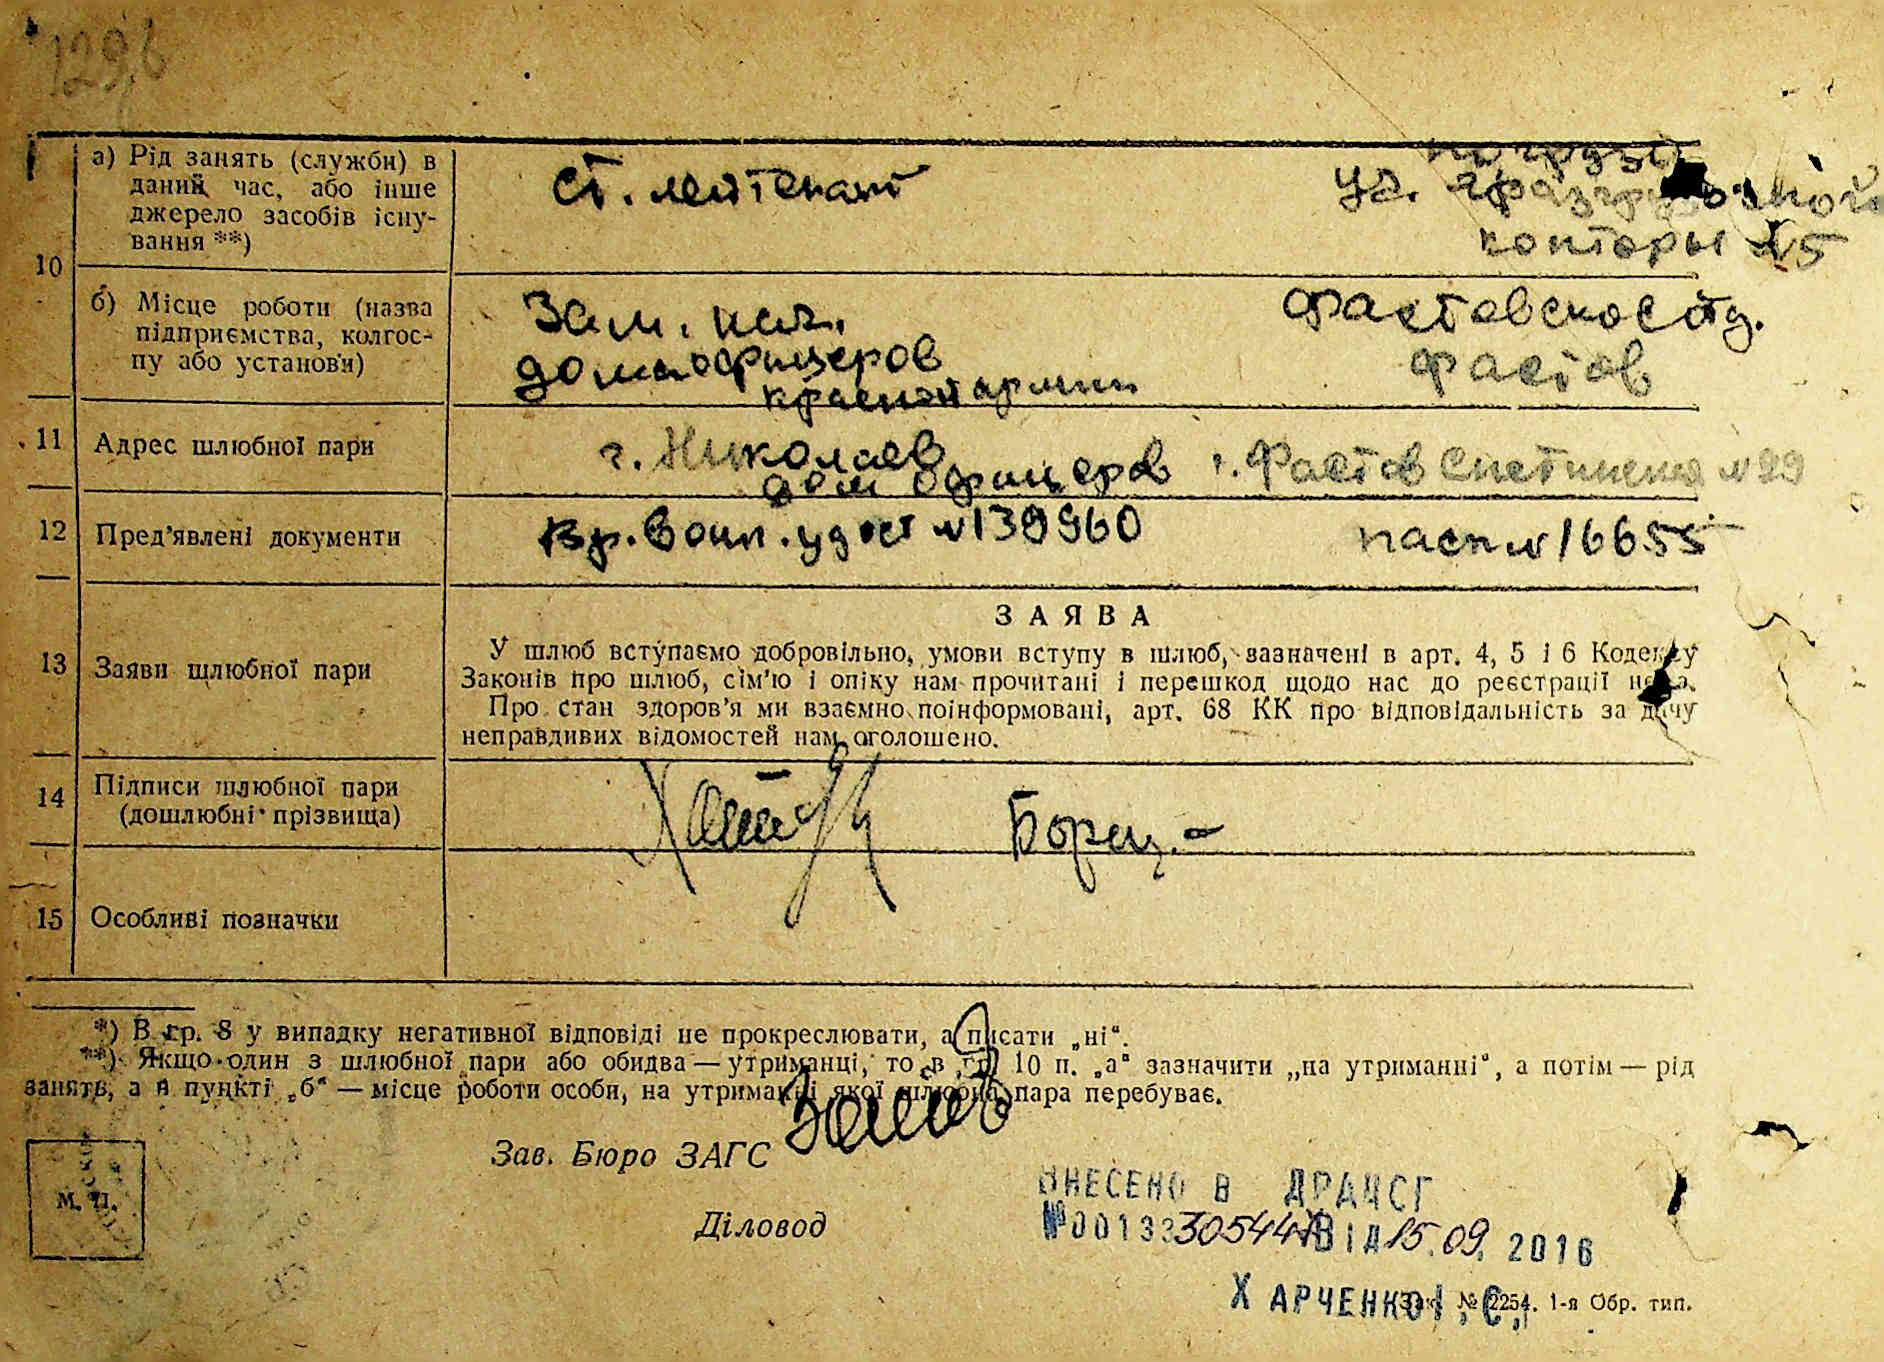 129
10
а) Рід занять (служби) в
даний час, або інше
джерело засобів існу-
вання **)
ст. лейтенант
уч.
конторы №5
б) Місце роботи (назва
підприємства, колгос-
пу або установи)
Зам. нач.
дома офицеров
красной армии
Фастов
11 Адрес шлюбної пари
г. Николаев
дом офицеров
г. Фастов
12 Пред'явлені документи
Вр. воин. удост №139960
пасп № 16655
13 Заяви шлюбної пари
ЗАЯВА
У шлюб вступаємо добровільно, умови вступу в шлюб, зазначені в арт. 4, 5 і 6 Кодексу
Законів про шлюб, сім'ю і опіку нам прочитані і перешкод щодо нас до реєстрації нема.
Про стан здоров'я ми взаємно поінформовані, арт. 68 КК про відповідальність за дачу
неправдивих відомостей нам оголошено.
14 Підписи шлюбної пари
(дошлюбні прізвища)
Борщ.-
15 Особливі позначки
*) В гр. 8 у випадку негативної відповіді не прокреслювати, а писати „ні“.
**) Якщо один з шлюбної пари або обидва — утриманці, то в гр. 10 п. „а“ зазначити „на утриманні“, а потім — рід
занять, а в пункті „б“ — місце роботи особи, на утриманні якої шлюбна пара перебуває.
Зав. Бюро ЗАГС
М. П.
Діловод
ВНЕСЕНО В ДРАЦСГ
ВІД 15.09. 2016
ХАРЧЕНКО І. С.
№ 2254. 1-я Обр. тип.